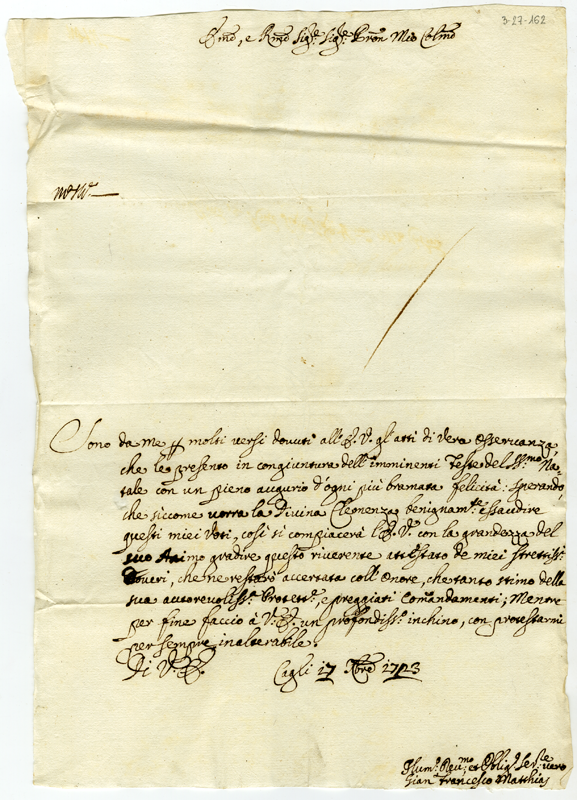 3-27-162
Emo, e Rmo Sigr. Sigr. Pron Mio Colmo
Sono da me p molti versi dovuti all'E. V. gl'atti di vera Osservanza,
che le presento in congiuntura dell'imminenti Feste del SSmo Na-
tale con un pieno augurio d'ogni più bramata felicità: sperando,
che siccome vorrà la Divina Clemenza benignamte essaudire
questi miei Voti, così si compiacerà l'E. Va con la grandezza del
suo Animo gradire questo riverente attestato de miei strettissi
Doveri, che ne restarò accertato coll'Onore, che tanto stimo della
sua autorevoliss. Protete, e preggiati Comandamenti; Mentre
per fine faccio à V. E. un profondiss. inchino, con protestarmi
per sempre inalterabile.
Di V. E. Cagli 17 Xbre 1723
Humo Devmo et Obligo Serre vero
Gian Francesco Matthias